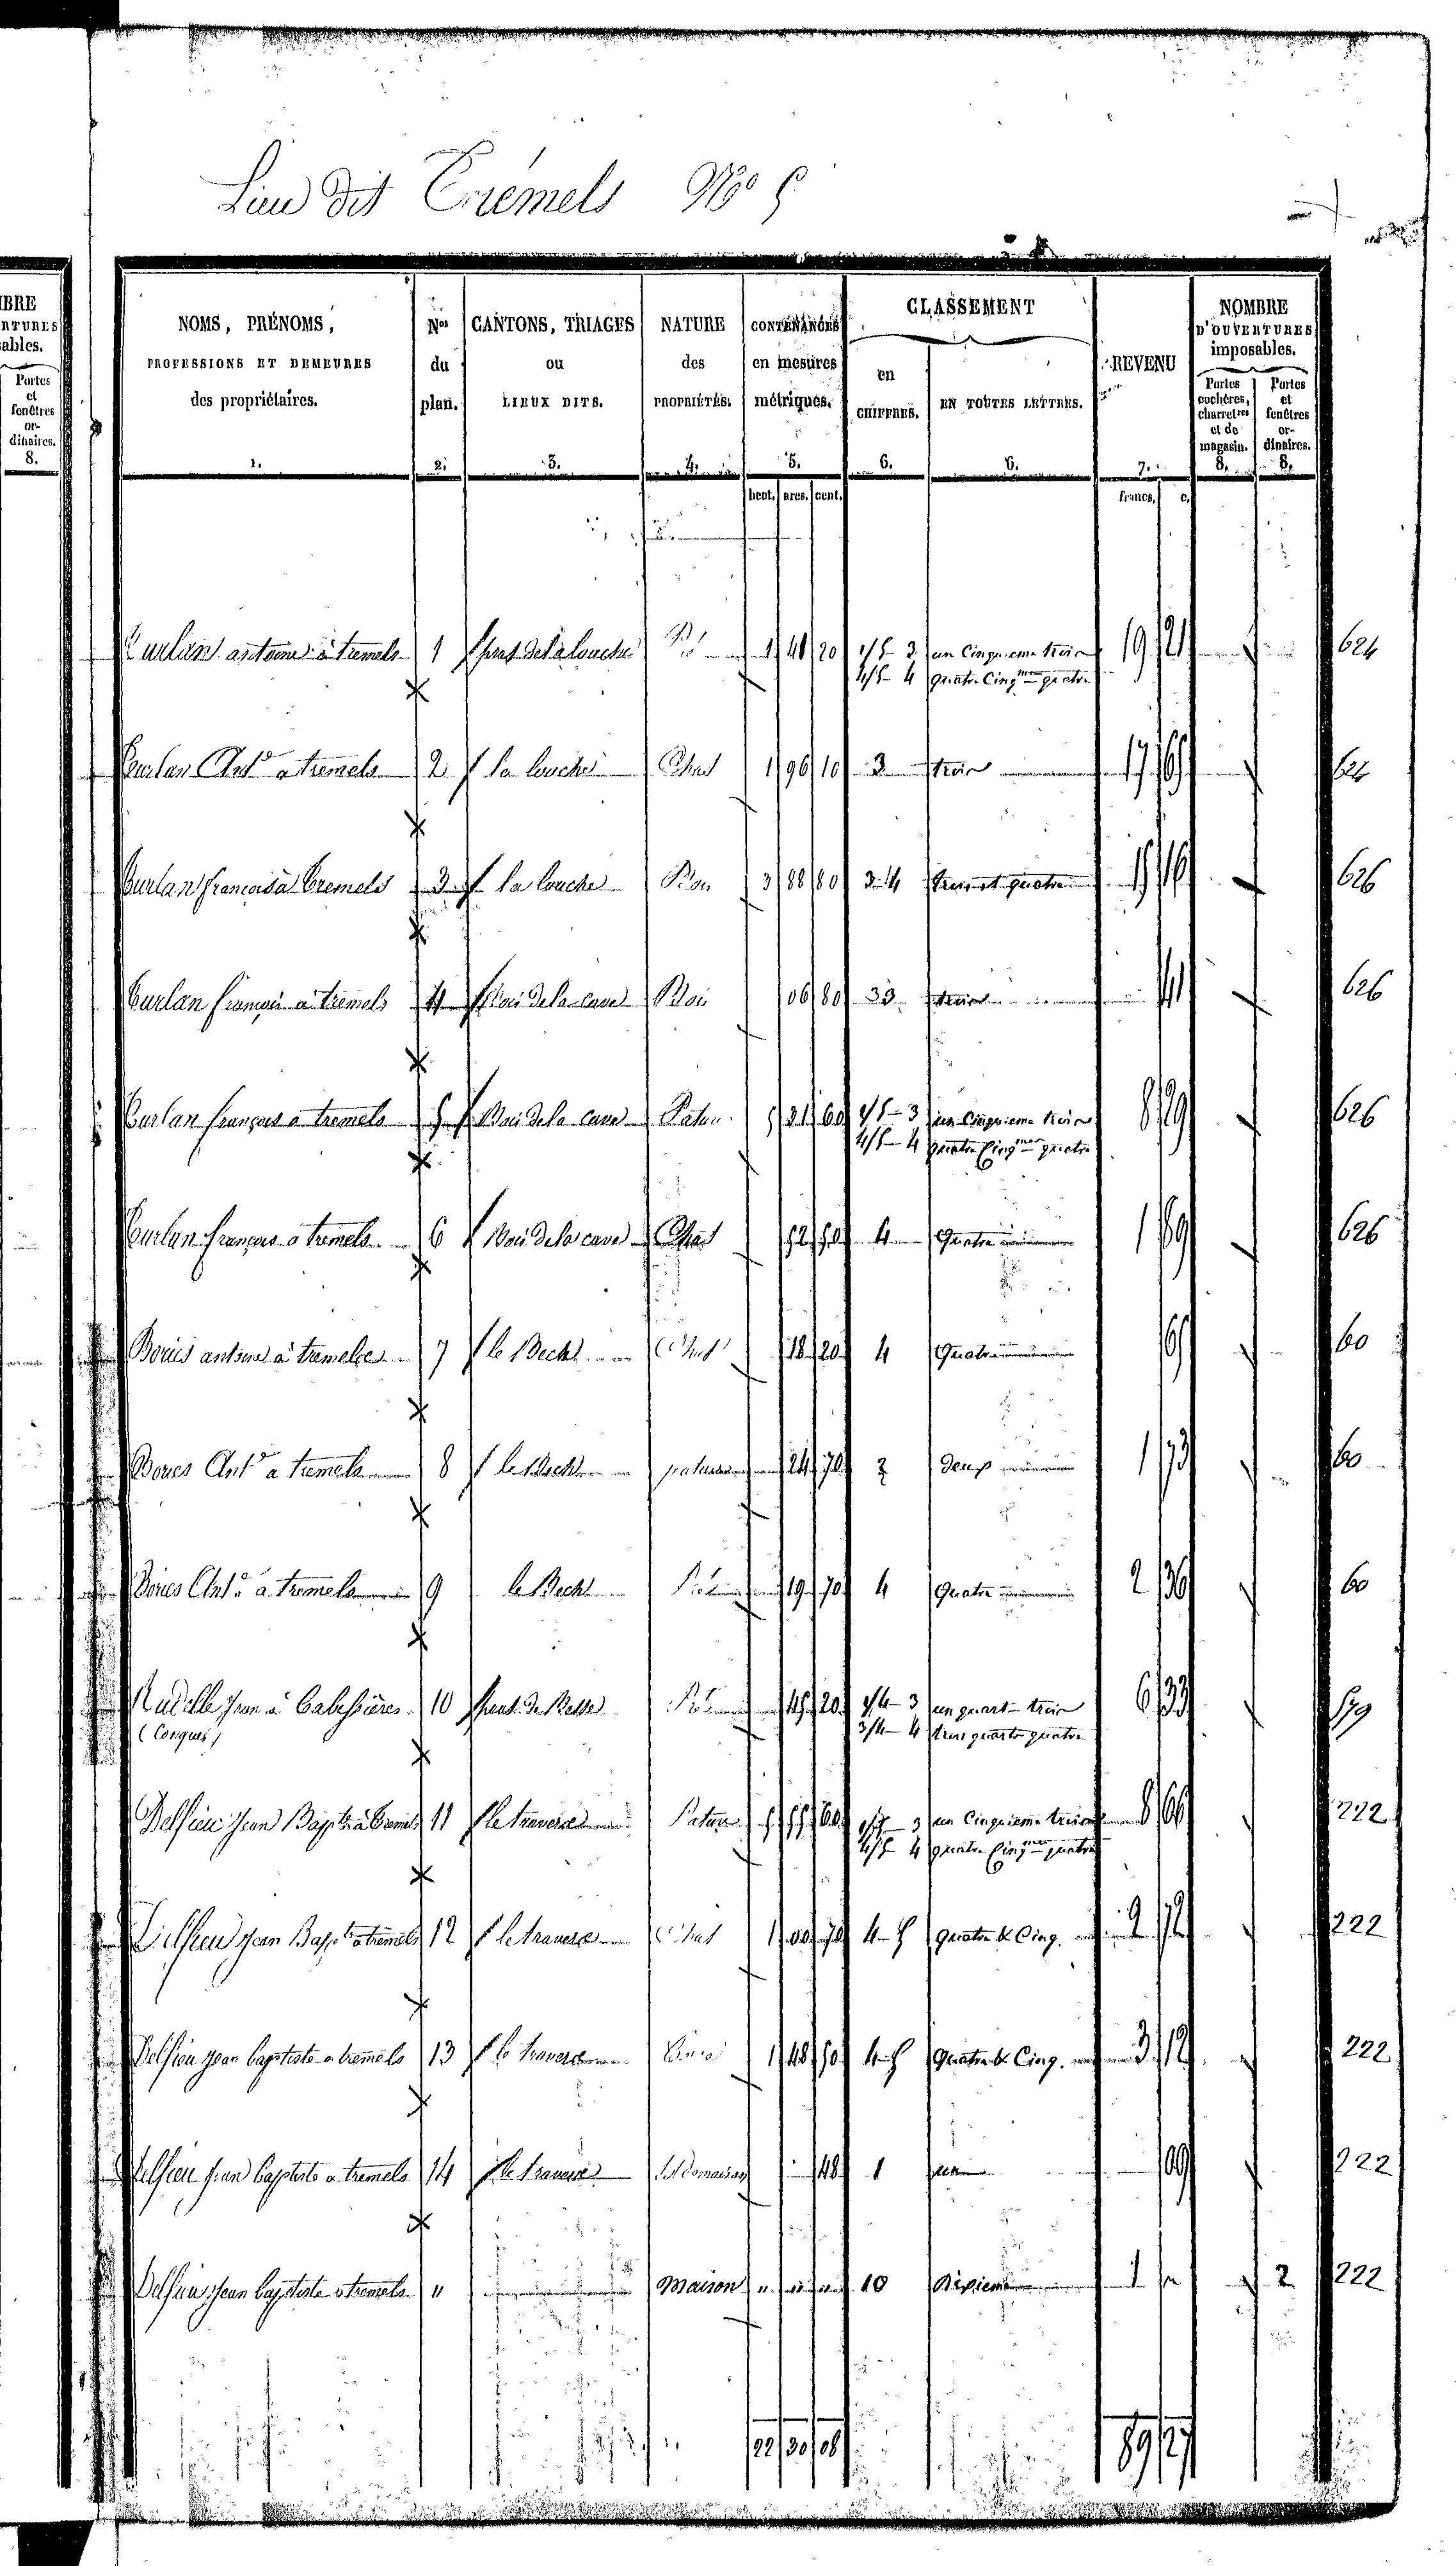 Lieu dit Trémels No 5
BRE
RTURES
ables.
Portes
et
fenêtres
or-
dinaires.
8.
NOMS, PRÉNOMS,
PROFESSIONS ET DEMEURES
des propriétaires.
1.
Nos
du
plan.
2.
CANTONS, TRIAGES
ou
LIEUX DITS.
3.
NATURE
des
PROPRIÉTÉS.
4.
CONTENANCES
en mesures
métriques.
5.
hect. ares. cent.
CLASSEMENT
en
CHIFFRES.
6.
EN TOUTES LETTRES.
6.
REVENU
7.
francs. c.
NOMBRE
D'OUVERTURES
imposables.
Portes
cochères,
charretres
et de
magasin.
8.
Portes
et
fenêtres
or-
dinaires.
8.
antoine à tremels 1 1 41 20 1/5 3 un Cinquieme trois 19 21 624
4/5 4 quatre Cinqmes quatre
Antne a tremels 2 la louche Chat 1 96 10 3 trois 17 65 624
francois à tremels 3 la louche Bois 3 88 80 3-4 trois et quatre 626
françois à tremels 4 Bois de la cave Bois 06 80 33 trois 41 626
françois a tremels 5 Bois de la cave Pature 5 31 60 1/5-3 un Cinquieme trois 8 29 626
4/5-4 quatre Cinqmes quatre
françois a tremels 6 Bois de la cave Chat 52 50 4 Quatre 1 89 626
antoine à tremels 7 le Becht Chat 18 20 4 Quatre 65 60
Antne a tremels 8 le Becht pature 24 70 2 deux 1 73 60
Antne a tremels 9 le Becht 19 70 4 Quatre 2 36 60
Jean à Cabessières 10 45 20 1/4-3 un quart trois 6 33 579
(Conques) 3/4-4 trois quarts quatre
Delfieu Jean Bapte à tremels 11 le traverse Pature 5 55 60 1/5-3 un Cinquieme trois 8 66 222
4/5-4 quatre Cinqmes quatre
Delfieu Jean Bapte a tremels 12 le traverse Chat 1 00 70 4-5 quatre & Cinq. 2 72 222
Delfieu Jean baptiste a tremels 13 le traverse 1 48 50 4-5 Quatre & Cinq. 3 12 222
Delfieu Jean baptiste a tremels 14 le traverse Sol de maison 48 1 un 09 222
Delfieu Jean baptiste a tremels " maison " " " 10 Dixieme 1 " 2 222
22 30 08 89 27